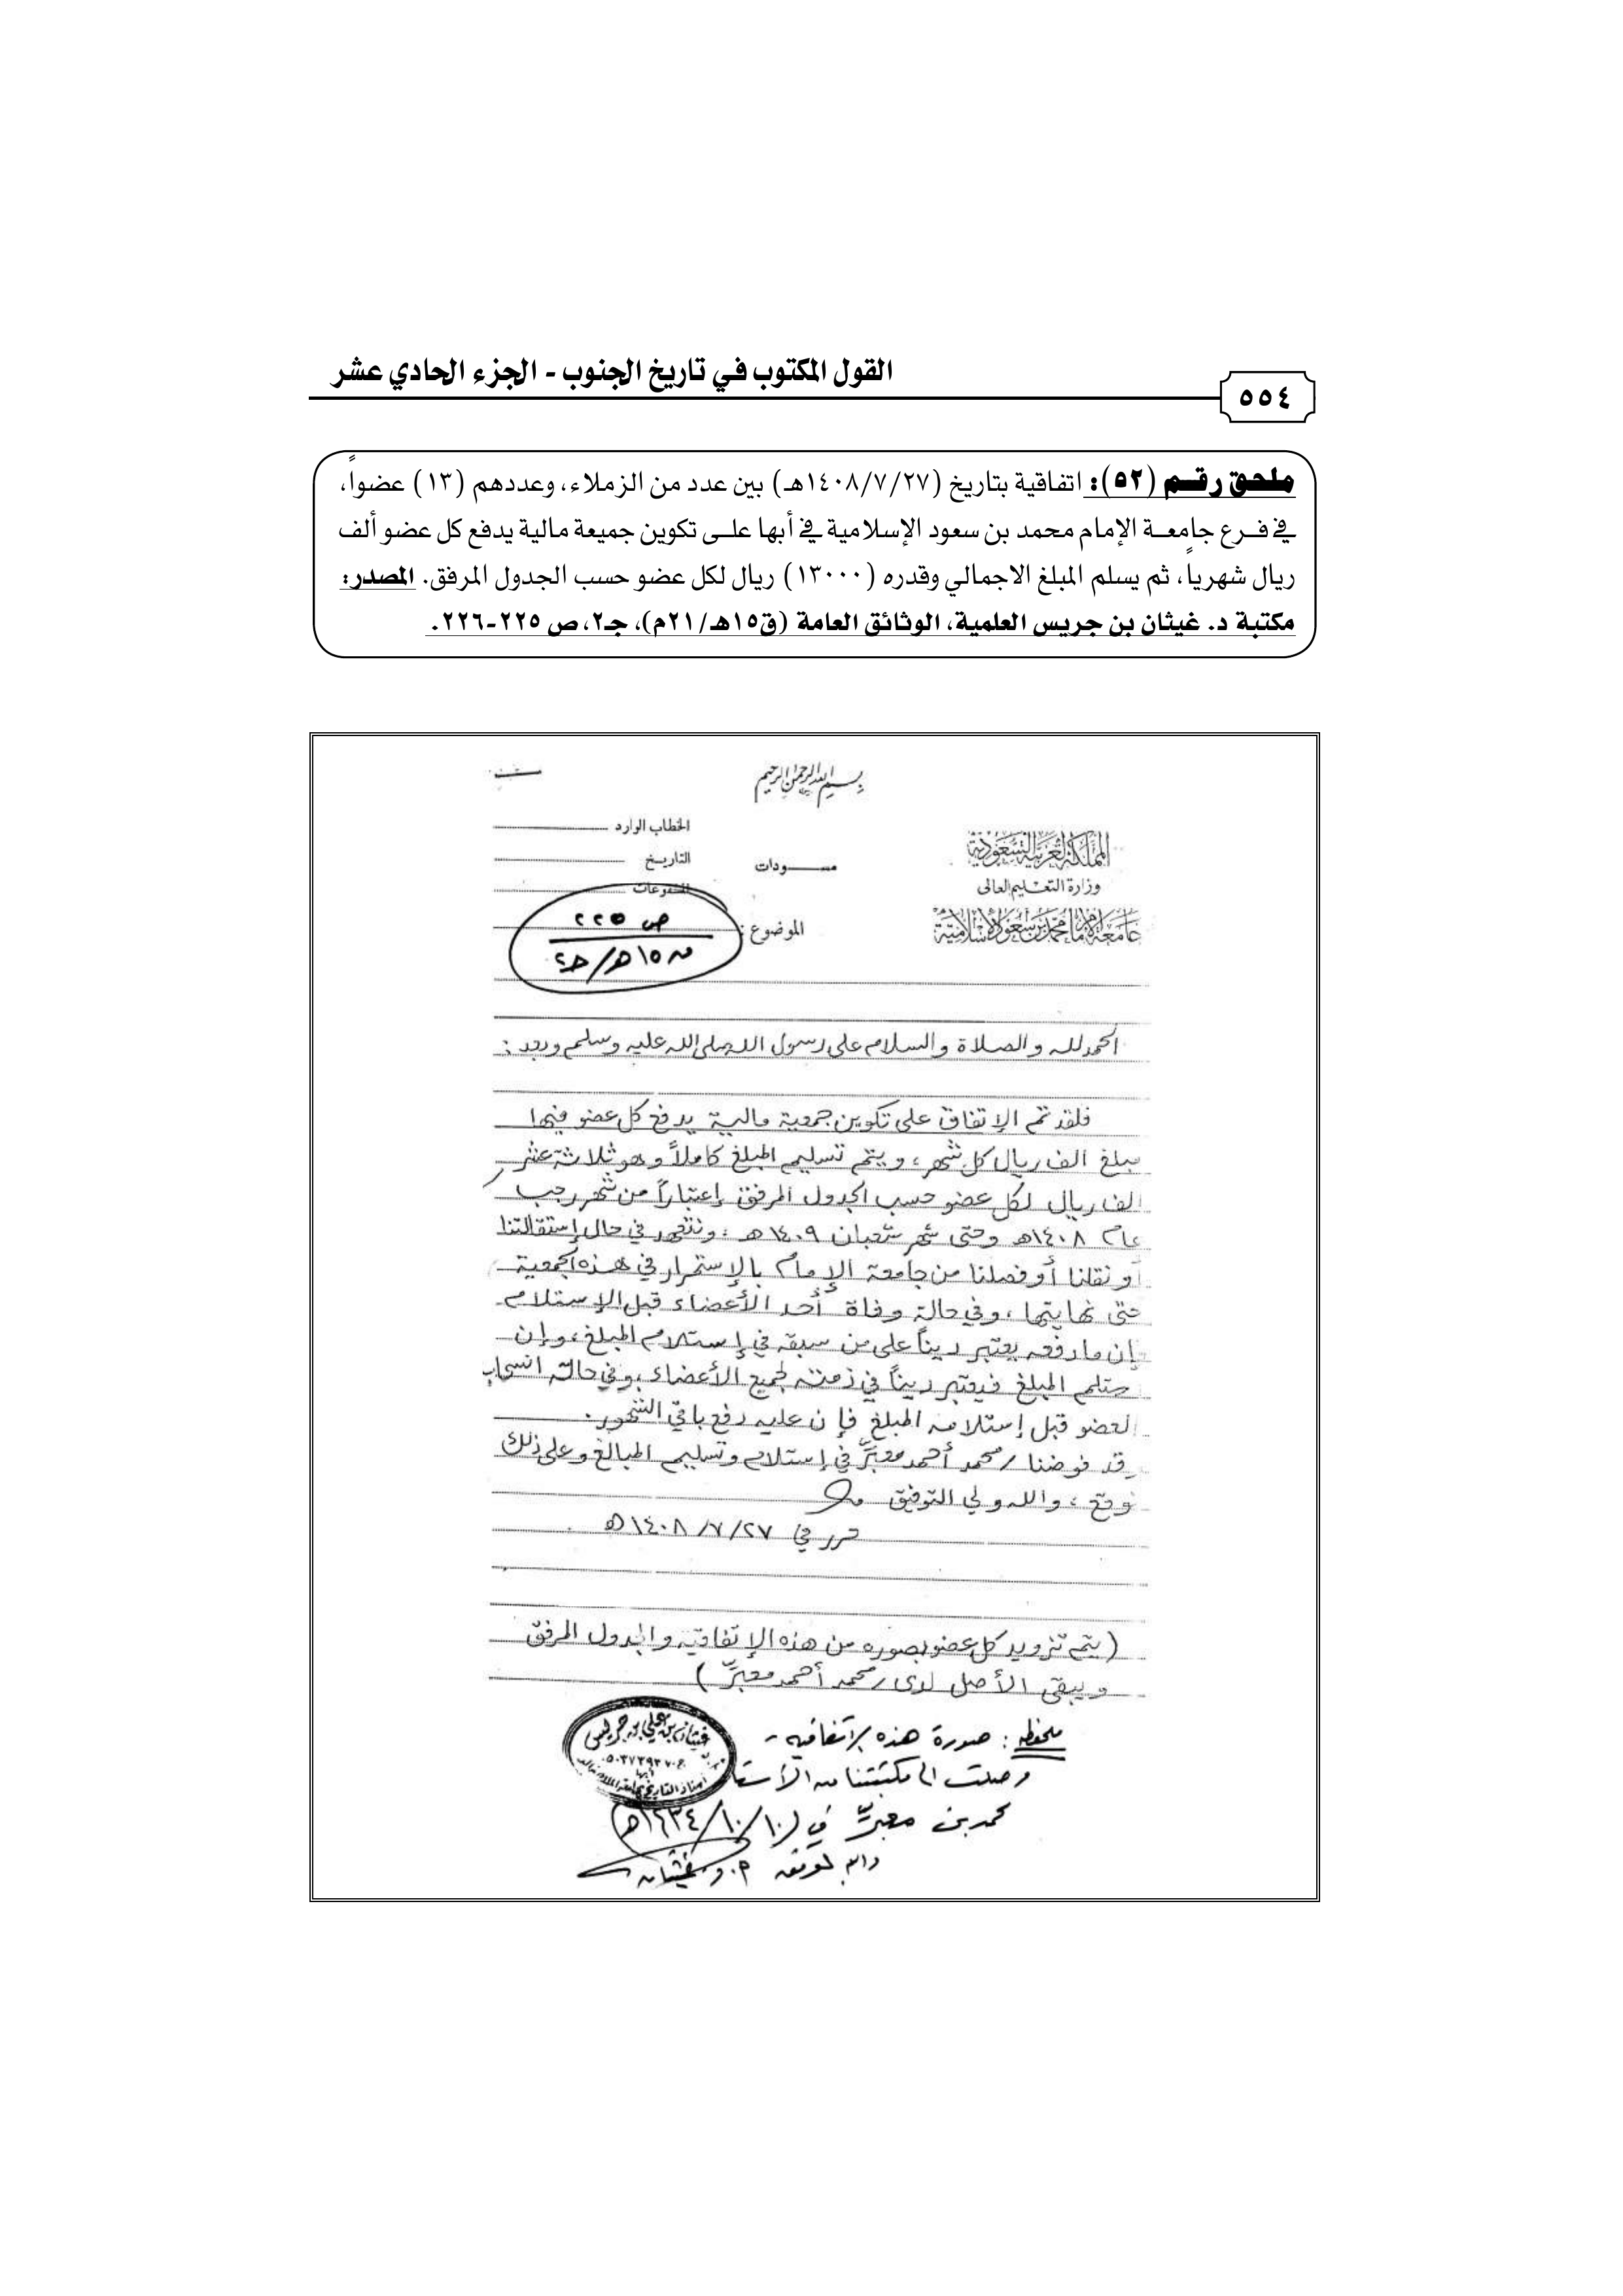 القول المكتوب في تاريخ الجنوب - الجزء الحادي عشر
٥٥٤
ملحق رقم (٥٢): اتفاقية بتاريخ (١٤٠٨/٧/٢٧هـ) بين عدد من الزملاء، وعددهم (١٣) عضواً،
في فرع جامعة الإمام محمد بن سعود الإسلامية في أبها على تكوين جميعة مالية يدفع كل عضو ألف
ريال شهرياً، ثم يسلم المبلغ الاجمالي وقدره (١٣٠٠٠) ريال لكل عضو حسب الجدول المرفق. المصدر:
مكتبة د. غيثان بن جريس العلمية، الوثائق العامة (ق١٥هـ/٢١م)، جـ٢، ص ٢٢٥-٢٢٦.
بسم الله الرحمن الرحيم
المملكة العربية السعودية
وزارة التعليم العالى
جامعة الإمام محمد بن سعود الإسلامية
مسودات
الخطاب الوارد
التاريخ
الموضوع:
ص ٢٢٥
ق ١٥هـ/جـ٢
الحمد لله والصلاة والسلام على رسول الله صلى الله عليه وسلم وبعد:
فلقد تم الإتفاق على تكوين جمعية مالية يدفع كل عضو فيها
مبلغ الف ريال كل شهر، ويتم تسليم المبلغ كاملاً وهو ثلاثة عشر
الف ريال لكل عضو حسب الجدول المرفق إعتباراً من شهر رجب
عام ١٤٠٨هـ وحتى شهر شعبان ١٤٠٩هـ، ونتعهد في حال إستقالتنا
أو نقلنا أو فصلنا من جامعة الإمام بالإستمرار في هذه الجمعية
حتى نهايتها، وفي حالة وفاة أحد الأعضاء قبل الإستلام
فإن ما دفعه يعتبر ديناً على من سبقه في إستلام المبلغ، وإن
استلم المبلغ فيعتبر ديناً في ذمته لجميع الأعضاء، وفي حالة انسحاب
العضو قبل إستلامه المبلغ فإن عليه دفع باقي الشهور.
وقد فوضنا / محمد أحمد معبّر في إستلام وتسليم المبالغ وعلى ذلك
نوقع، والله ولي التوفيق
حرر في ١٤٠٨/٧/٢٧هـ
(يتم تزويد كل عضو بصوره من هذه الإتفاقيه والجدول المرفق
ويبقى الأصل لدى / محمد أحمد معبّر)
ملحظه: صورة هذه الاتفاقيه
وصلت الى مكتبتنا من الأستاذ
محمد بن معبّر في (١٤٣٤/١٠/١٠هـ)
والله الموفق أ.د. غيثان
غيثان بن علي بن جريس